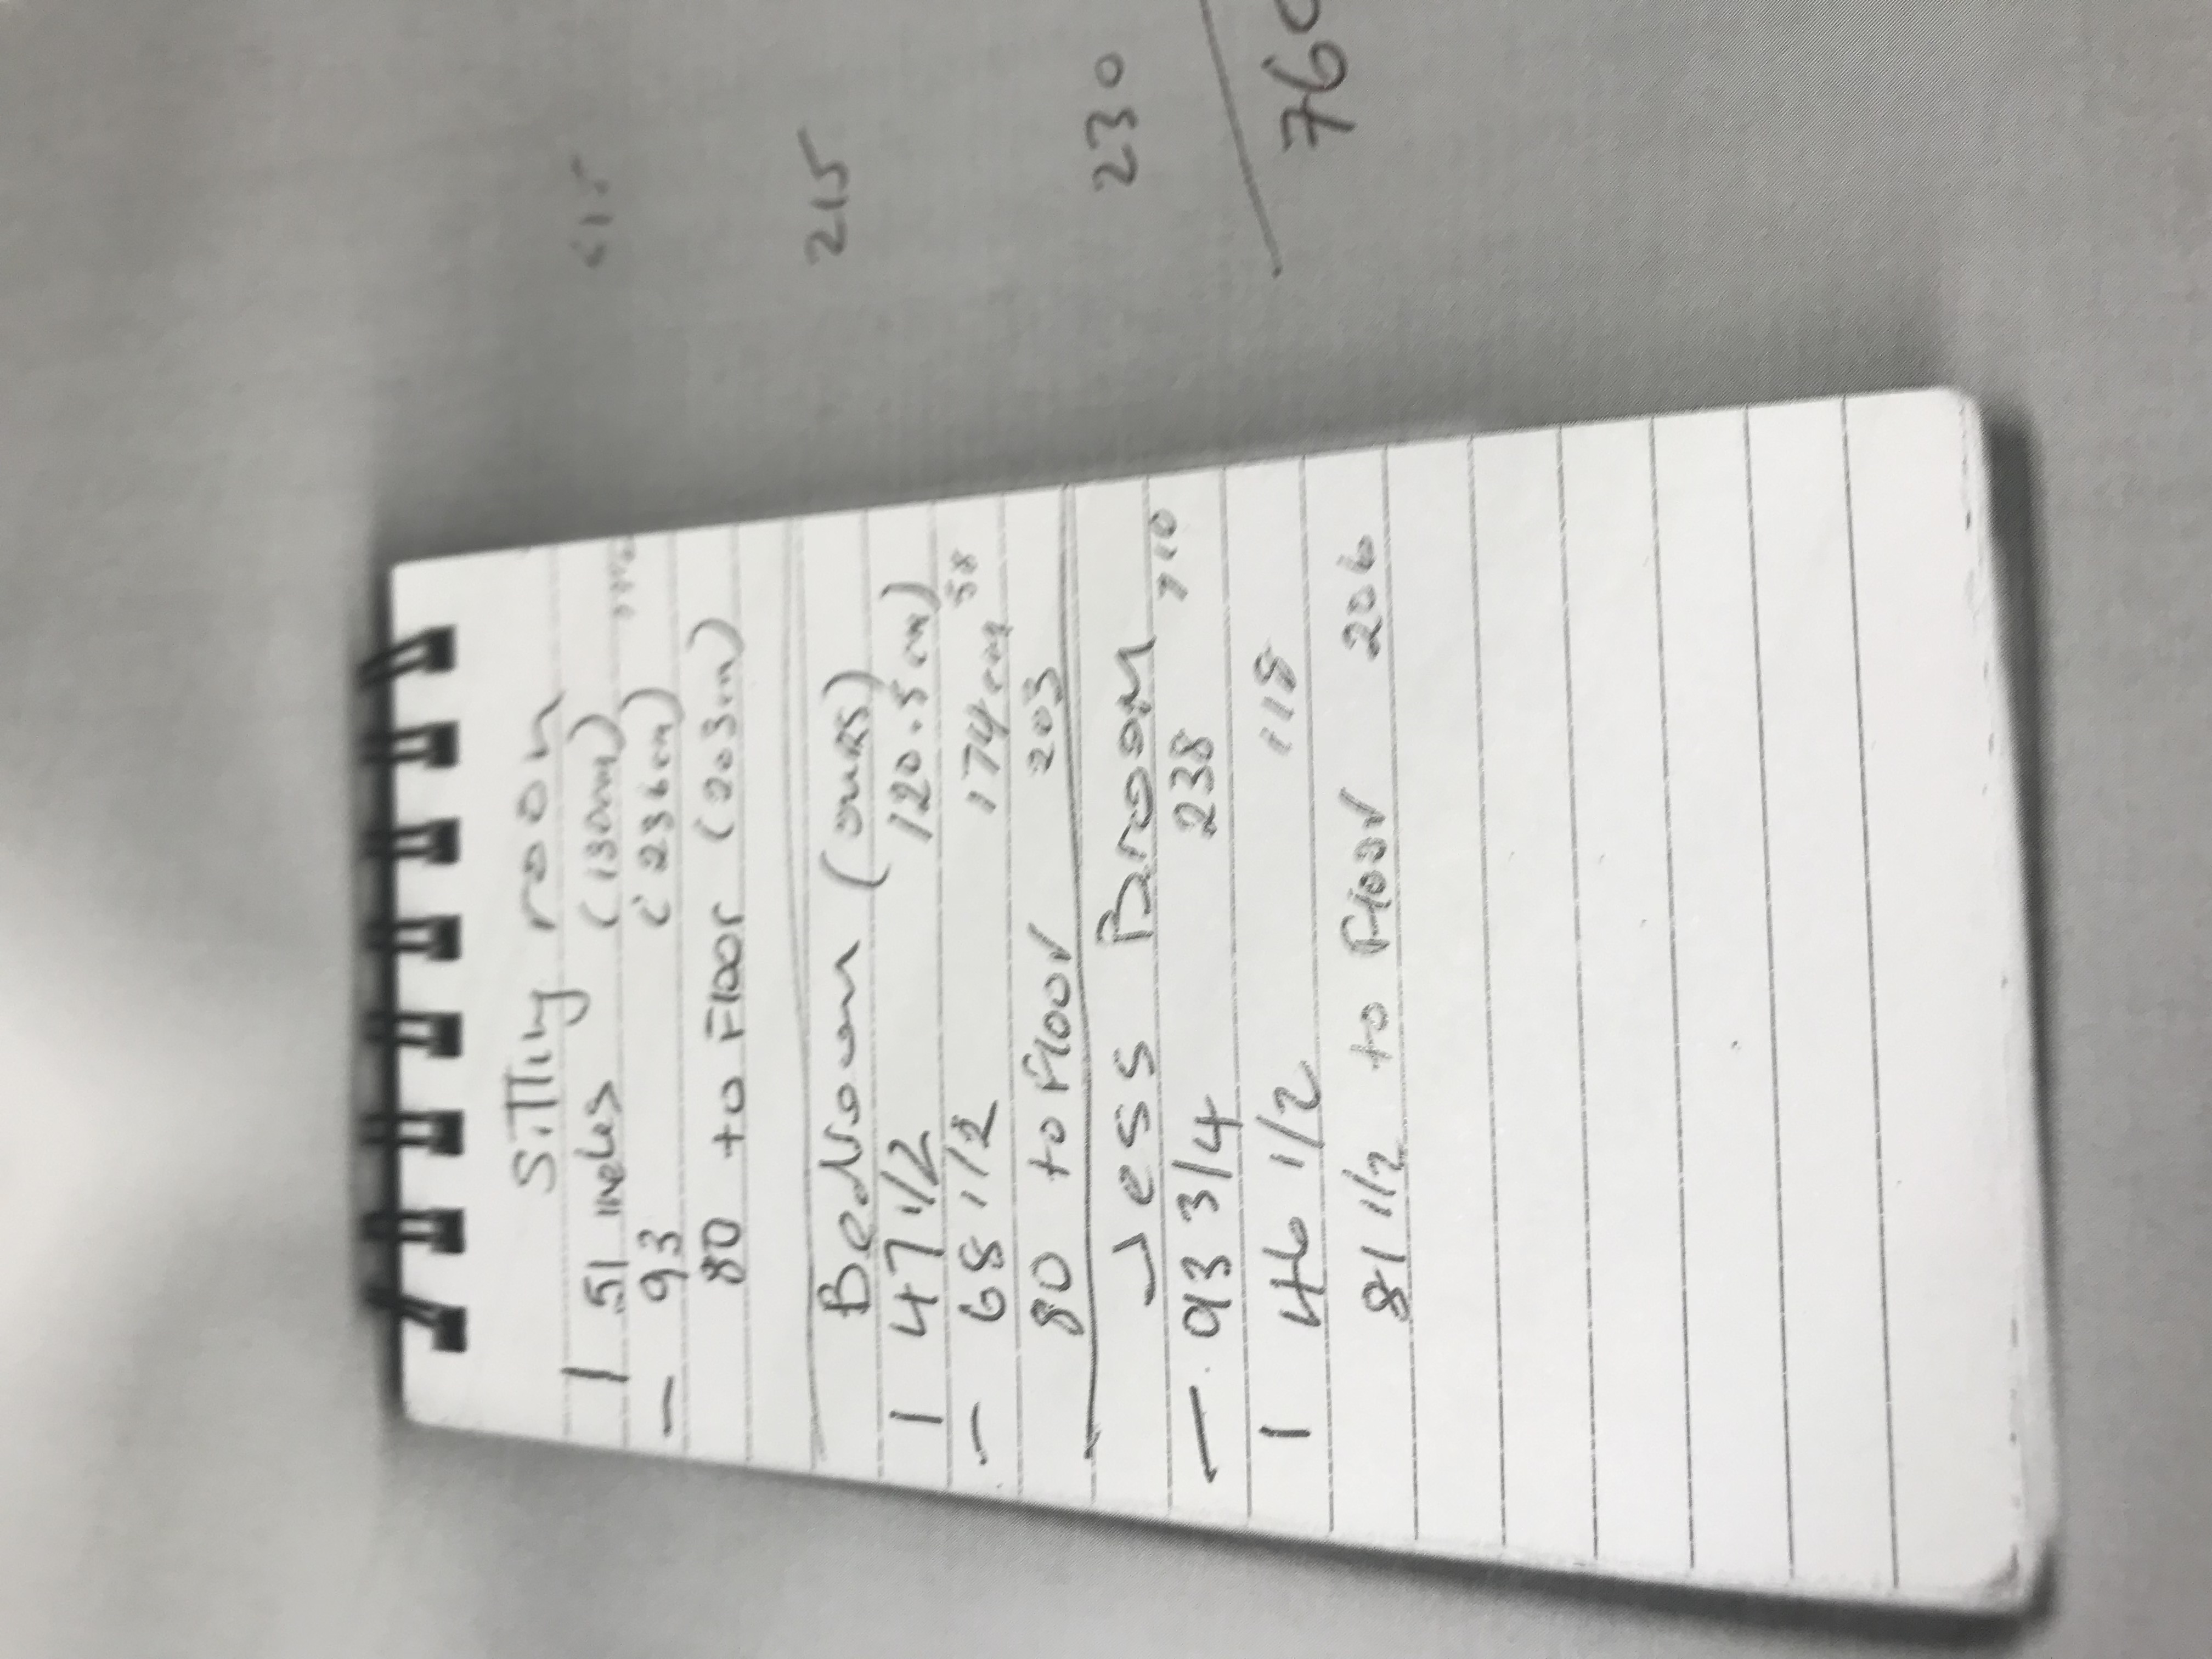 Sitting room
| 51 inches (130cm)
- 93 (236cm)
80 to Floor (203cm)
Bedroom (ours)
| 47 1/2 120.5cm)
- 68 1/2 174cm 58
80 to Floor 203
Jess Broom
- 93 3/4 238
| 46 1/2 118
81 1/2 to Floor 206
215
230